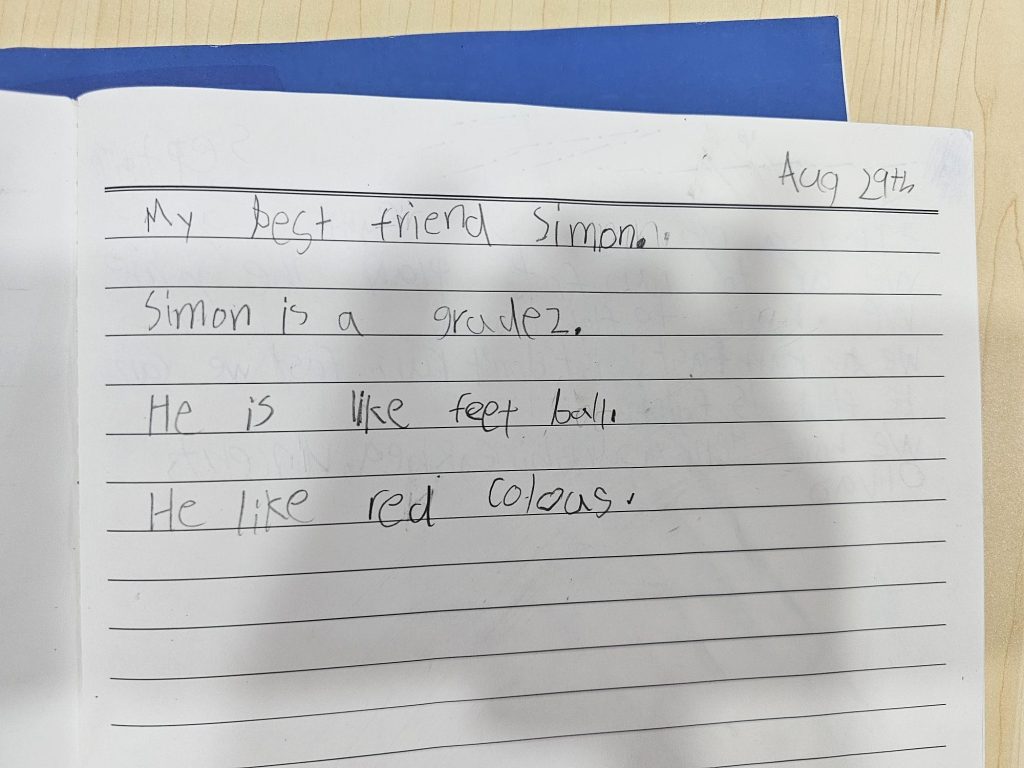 Aug 29th
My best friend Simon.
Simon is a grade 2.
He is like feet ball.
He like red colous.